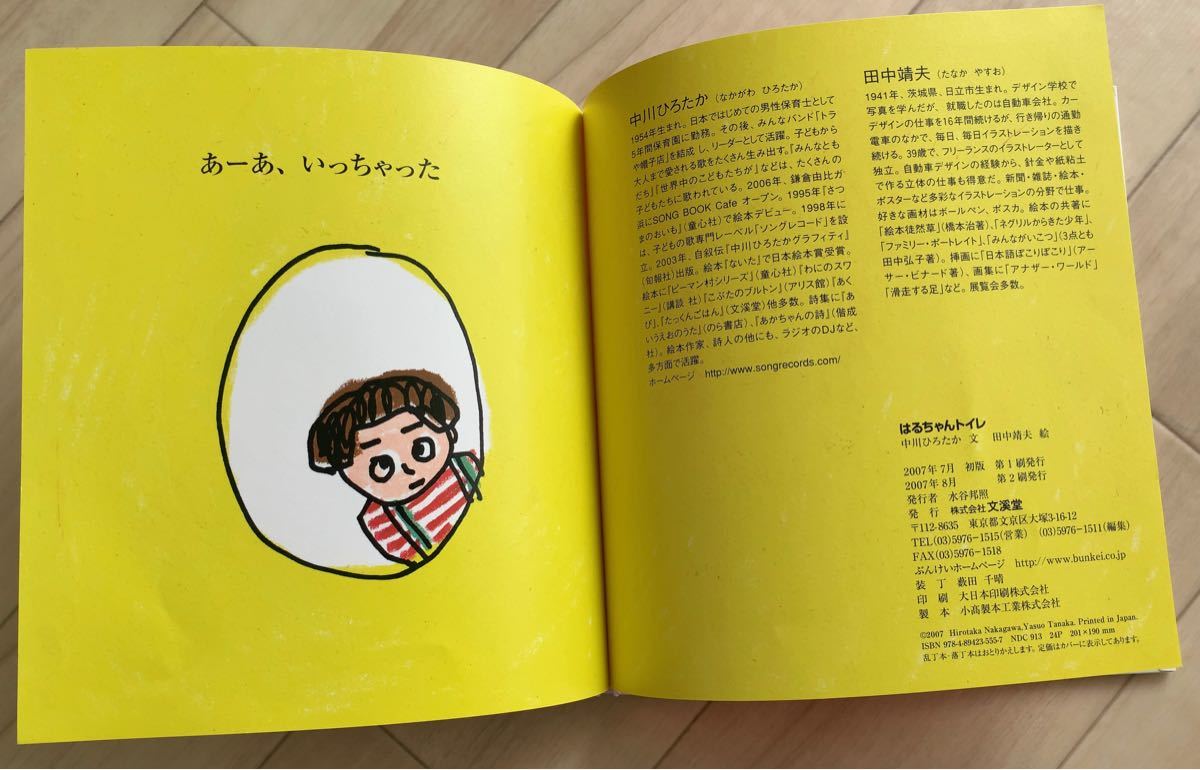 あーあ、いっちゃった
中川ひろたか (なかがわ ひろたか)
1954年生まれ。日本ではじめての男性保育士として
5年間保育園に勤務。その後、みんなバンド「トラ
や帽子店」を結成し、リーダーとして活躍。子どもから
大人まで愛される歌をたくさん生み出す。『みんなとも
だち』『世界中のこどもたちが』などは、たくさんの
子どもたちに歌われている。2006年、鎌倉由比ガ
浜にSONG BOOK Cafe オープン。1995年『さつ
まのおいも』(童心社)で絵本デビュー。1998年に
は、子どもの歌専門レーベル「ソングレコード」を設
立。2003年、自叙伝『中川ひろたかグラフィティ』
(旬報社)出版。絵本『ないた』で日本絵本賞受賞。
絵本に『ピーマン村シリーズ』(童心社)『わにのスワ
ニー』(講談社)『こぶたのブルトン』(アリス館)『あく
び』、『たっくんごはん』(文溪堂)他多数。詩集に『あ
いうえおのうた』(のら書店)、『あかちゃんの詩』(偕成
社)。絵本作家、詩人の他にも、ラジオのDJなど、
多方面で活躍。
ホームページ http://www.songrecords.com/
田中靖夫 (たなか やすお)
1941年、茨城県、日立市生まれ。デザイン学校で
写真を学んだが、就職したのは自動車会社。カー
デザインの仕事を16年間続けるが、行き帰りの通勤
電車のなかで、毎日、毎日イラストレーションを描き
続ける。39歳で、フリーランスのイラストレーターとして
独立。自動車デザインの経験から、針金や紙粘土
で作る立体の仕事も得意だ。新聞・雑誌・絵本・
ポスターなど多彩なイラストレーションの分野で仕事。
好きな画材はボールペン、ポスカ。絵本の共著に
「絵本徒然草」(橋本治著)、「ネグリルからきた少年」、
「ファミリー・ポートレイト」、「みんながいこつ」(3点とも
田中弘子著)。挿画に「日本語ぽこりぽこり」(アー
サー・ビナード著)、画集に「アナザー・ワールド」
「滑走する足」など。展覧会多数。
はるちゃんトイレ
中川ひろたか 文 田中靖夫 絵
2007年7月 初版 第1刷発行
2007年8月 第2刷発行
発行者 水谷邦照
発 行 株式会社 文溪堂
〒112-8635 東京都文京区大塚3-16-12
TEL(03)5976-1515(営業) (03)5976-1511(編集)
FAX(03)5976-1518
ぶんけいホームページ http://www.bunkei.co.jp
装 丁 薮田 千晴
印 刷 大日本印刷株式会社
製 本 小髙製本工業株式会社
©2007 Hirotaka Nakagawa,Yasuo Tanaka. Printed in Japan.
ISBN 978-4-89423-555-7 NDC 913 24P 201×190 mm
乱丁本・落丁本はおとりかえします。定価はカバーに表示してあります。